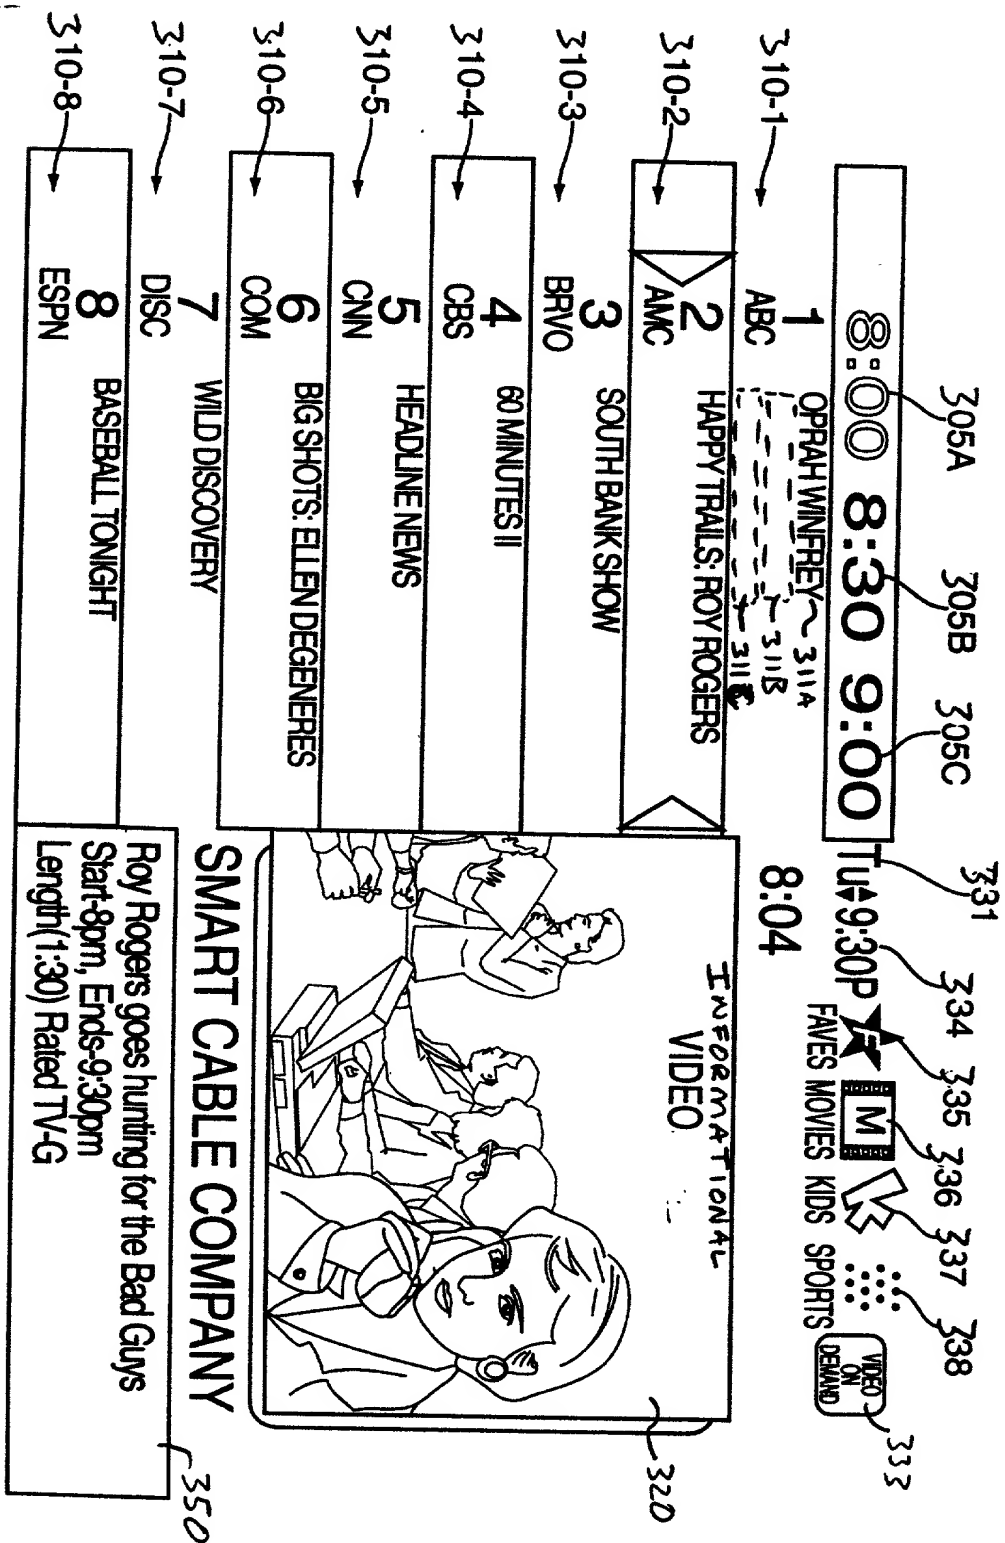 305A 305B 305C 331 334 335 336 337 338 333
8:00 8:30 9:00 Tu 9:30P F M VIDEO ON DEMAND
FAVES MOVIES KIDS SPORTS
8:04
310-1 1 ABC OPRAH WINFREY 311A
311B
310-2 2 AMC HAPPY TRAILS: ROY ROGERS
310-3 3 BRVO SOUTH BANK SHOW
310-4 4 CBS 60 MINUTES II
310-5 5 CNN HEADLINE NEWS
310-6 6 COM BIG SHOTS: ELLEN DEGENERES
310-7 7 DISC WILD DISCOVERY
310-8 8 ESPN BASEBALL TONIGHT
INFORMATIONAL
VIDEO
320
SMART CABLE COMPANY
Roy Rogers goes hunting for the Bad Guys
Start-8pm, Ends-9:30pm
Length(1:30) Rated TV-G
350